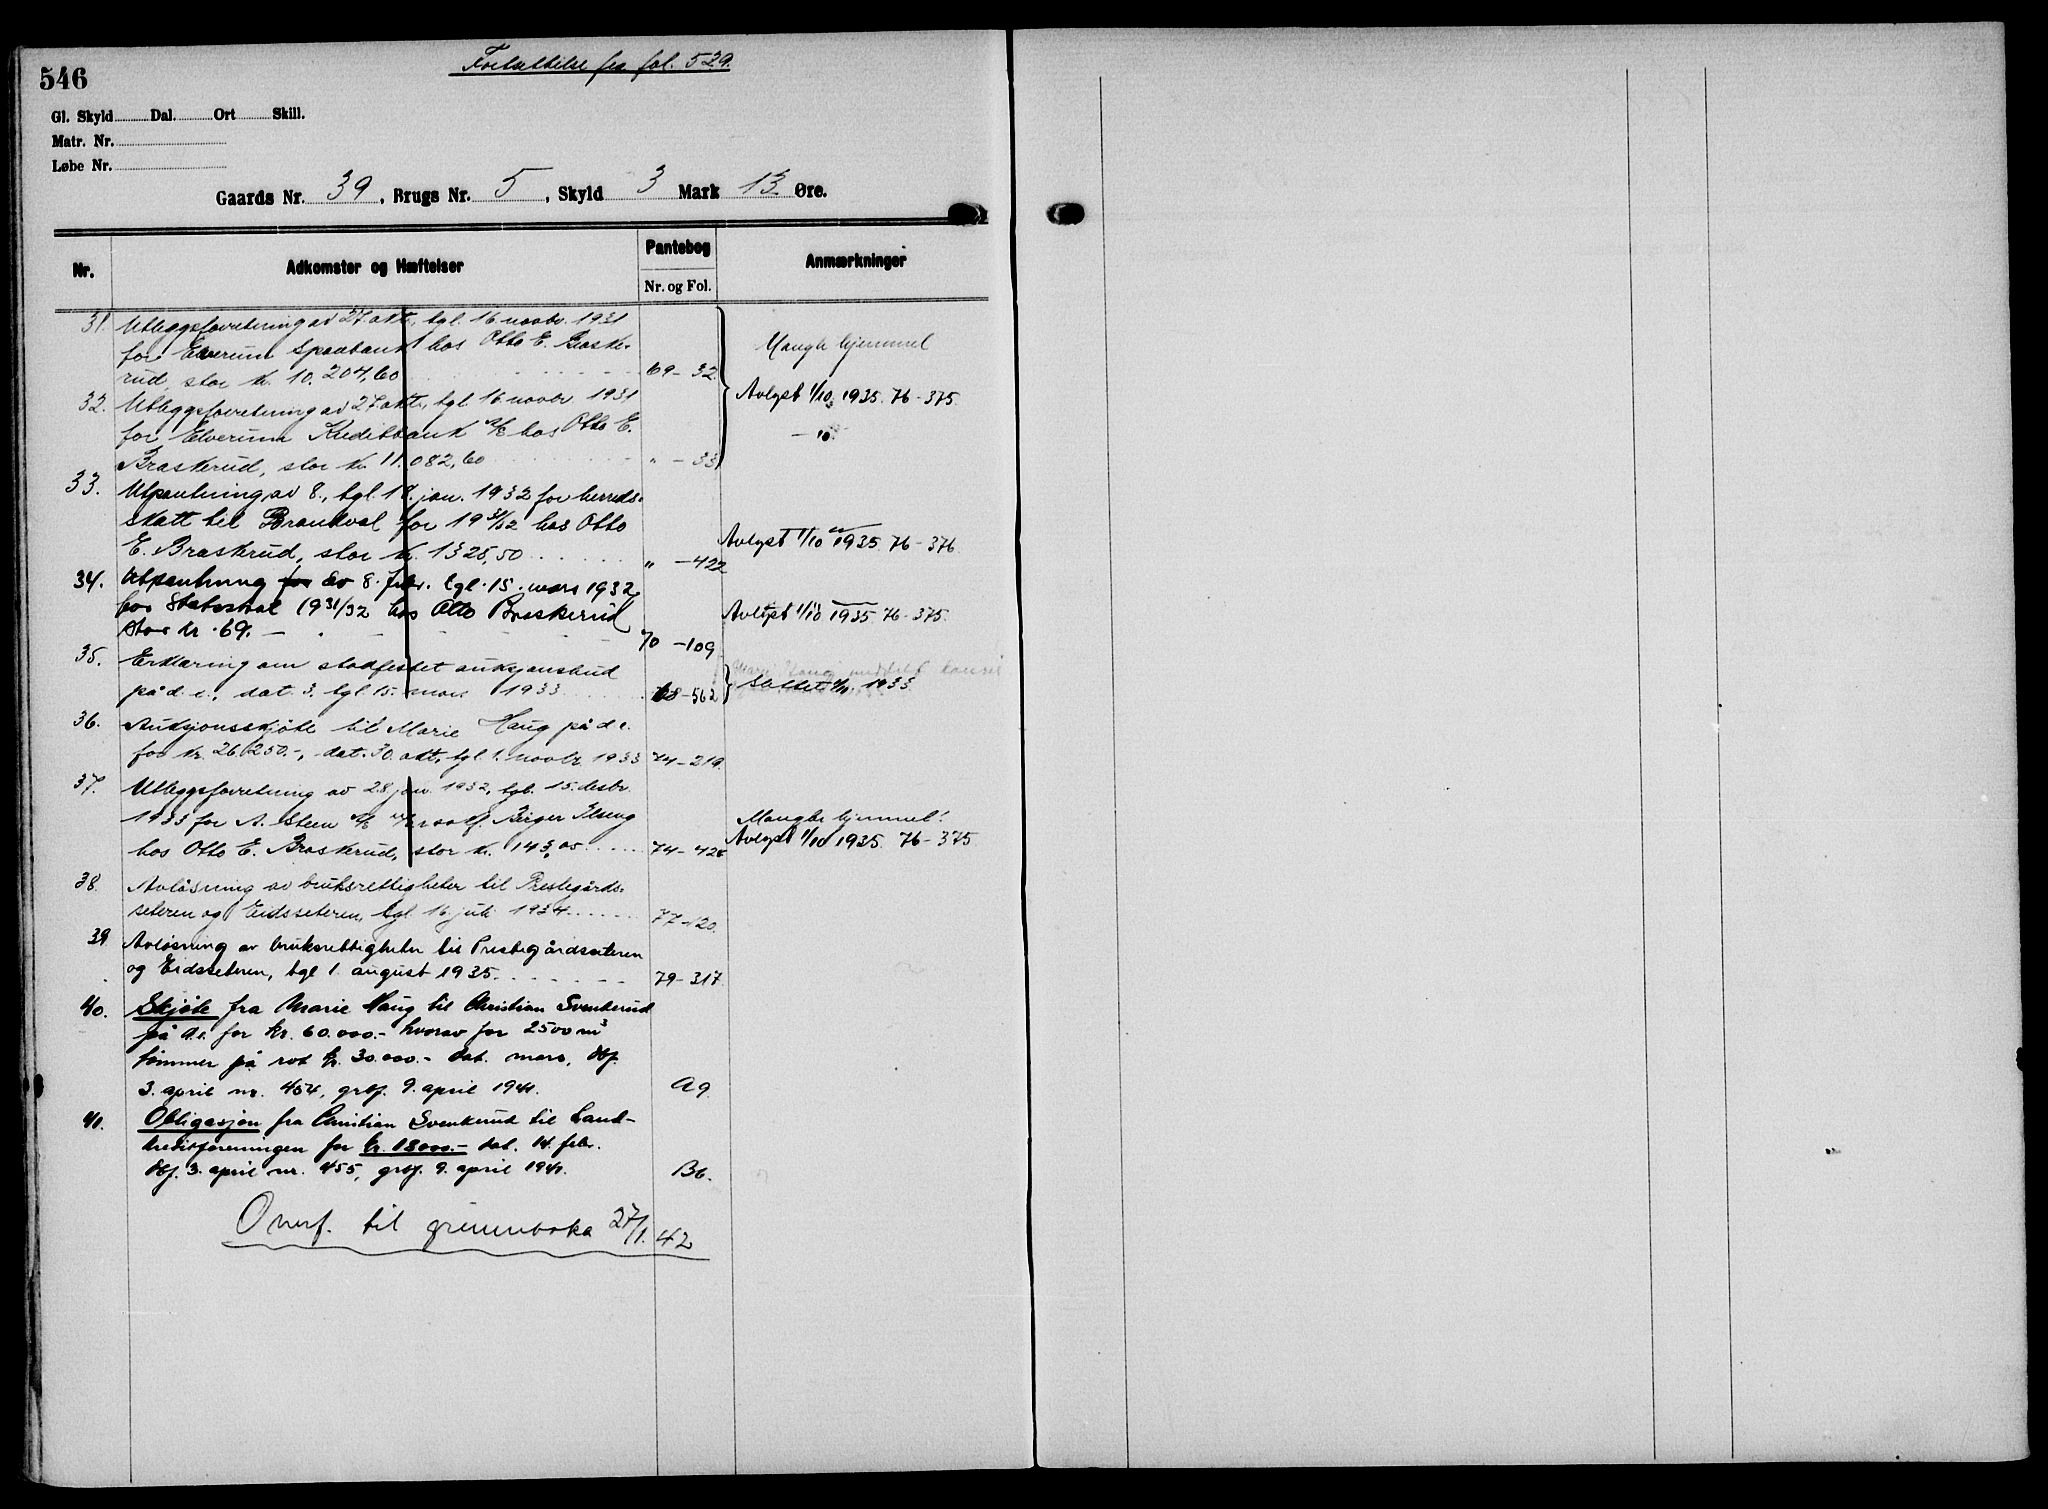 546
Fortsettelse fra fol. 529.
Gl. Skyld Dal. Ort Skill.
Matr. Nr.
Løbe Nr.
Gaards Nr. 39, Brugs Nr. 5, Skyld 3 Mark 13 Øre.
Nr. Adkomster og Hæftelser Pantebog Anmærkninger
Nr. og Fol.
31. Utleggsforretning av 27. okt., tgl. 16. novbr. 1931
for Elverum Sparebank hos Otto E. Braske- Mangler hjemmel
rud, stor kr. 10.204,60 69 - 32
32. Utleggsforretning av 27. okt., tgl. 16. novbr. 1931 Avlyst 1/10 1935. 76 - 375.
for Elverum Kreditbank A/S hos Otto E. — " —
Braskerud, stor kr. 11.082,60 " - 33
33. Utpantning av 8., tgl. 18. jan. 1932 for herreds-
skatt til Brandval for 1931/32 hos Otto
E. Braskerud, stor kr. 1325,50 " - 422 Avlyst 1/10 1935. 76 - 376
34. Utpantning for av 8. febr. tgl. 15. mars 1932
for Statsskat 1931/32 hos Otto Braskerud Avlyst 1/10 1935. 76 - 375.
stor kr. 69. — 70 - 109
35. Erklæring om stadfestet auksjonsbud Marie Haug meddelt
på d. e., dat. 3. tgl. 15. mars 1933 68 - 562 Slettet 1/11. 1933.
36. Auksjonsskjøte til Marie Haug på d. e.
for kr. 26.250.-, dat. 30. okt., tgl. 1. novbr. 1933 74 - 219.
37. Utleggsforretning av 28. jan. 1932, tgl. 15. desbr.
1933 for A. Steen A/S v/ Birger Ilseng Mangler hjemmel!
hos Otto E. Braskerud, stor kr. 143,05 74 - 428 Avlyst 1/10 1935. 76 - 375
38. Avløsning av bruksrettigheter til Prestegårds-
seteren og Eidsseteren, tgl. 16. juli 1934 77 - 120.
39. Avløsning av bruksrettigheter til Prestegårdsseteren
og Eidsseteren, tgl. 1. august 1935. 79 - 317
40. Skjøte fra Marie Haug til Christian Svenkerud
på d.e. for kr. 60.000.- hvorav for 2500 m³
tømmer på rot kr. 30.000.- dat. mars, dbf.
3. april nr. 454, grbf. 9. april 1941. A9.
41. Obligasjon fra Christian Svenkerud til Land-
kreditforeningen for kr. 18000.- dat. 14. febr.
dbf. 3. april nr. 455, grbf. 9. april 1941. B6.
Overf. til grunnboka 27/1. 42